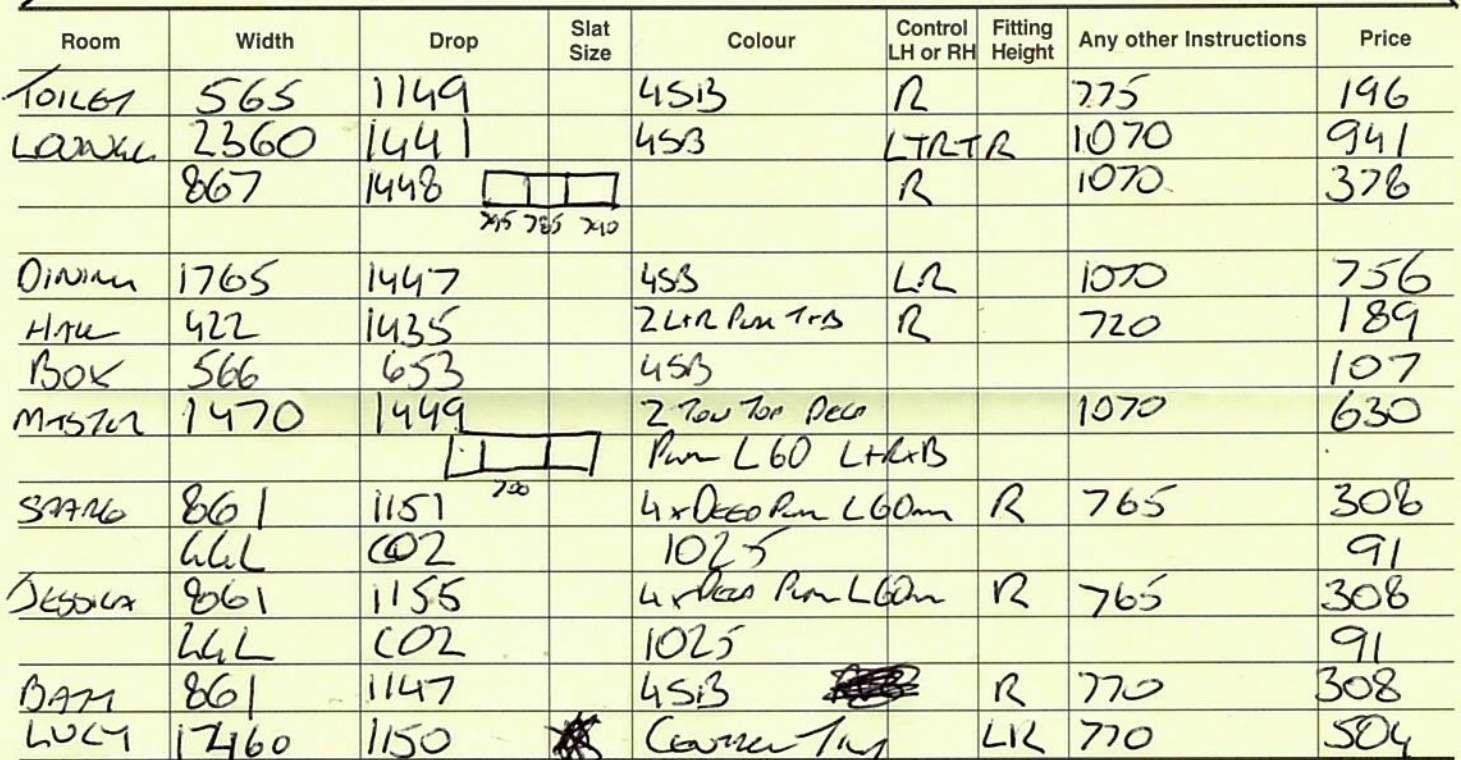 Room Width Drop Slat Size Colour Control LH or RH Fitting Height Any other Instructions Price
TOILET 565 1149 4SB R 775 196
LOUNGE 2360 1441 4SB L+R+R 1070 941
867 1448 R 1070 378
795 785 790
DINING 1765 1447 4SB LR 1070 756
HALL 422 1435 2 L+R T+B R 720 189
BOX 566 653 4SB 107
MASTER 1470 1449 2 Top Deco 1070 630
L60 L+R+B
700
861 1151 4x Deco L60mm R 765 308
CO2 1025 91
JESSICA 861 1155 4x Deco L60m R 765 308
CO2 1025 91
BATH 861 1147 4SB R 770 308
LUCY 1150 LR 770 504